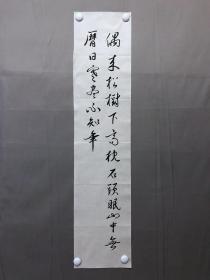 偶来松樹下高枕石頭眠山中無
曆日寒尽不知年